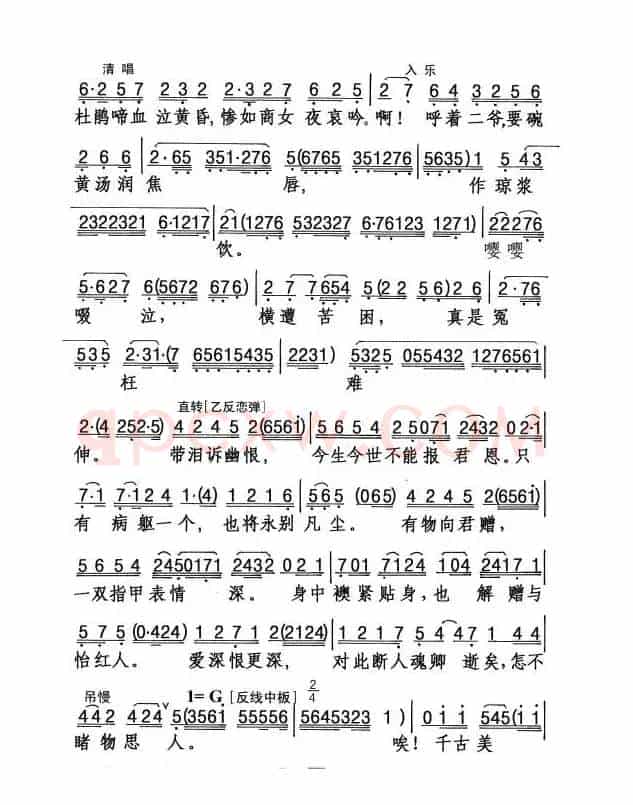 清唱 入乐
6·2 5 7 2 3 2 3·2 2 7 6 2 5 | 2 7 6 4 3 2 5 6
杜鹃啼血泣黄昏,惨如商女夜哀吟。啊!呼着二爷,要碗
2 6 6 | 2·65 351·276 5(6765 351276 | 5635)1 5 43
黄汤润焦唇,作琼浆
2322321 6·1217 | 21(1276 532327 6·76123 1271) | 22276
饮。嘤嘤
5·627 6(5672 676) | 2 7 7654 5(22 56)26 | 2·76
啜泣,横遭苦困,真是冤
535 2·31·(7 65615435 | 2231) 5325 055432 1276561 |
枉难
直转[乙反恋弹]
2·(4 252·5) 4 2 4 5 2(6561) | 5 6 5 4 25071 2432 02·1
伸。带泪诉幽恨,今生今世不能报君恩。只
7·1 7·124 1·(4) 1 2 1 6 | 565 (065) 4 2 4 5 2(6561) |
有病躯一个,也将永别凡尘。有物向君赠,
5 6 5 4 2450171 2432 0 2 1 | 701 7124 104 24171 |
一双指甲表情深。身中襖紧贴身,也解赠与
5 7 5 (0·424) 1 2 7 1 2(2124) | 1 2 1 7 5 4 47 1 0 44
怡红人。爱深恨更深,对此断人魂卿逝矣,怎不
吊慢 1=G[反线中板] 2/4
442 424 ∨ 5(3561 55556 | 5645323 1 ) | 011 545(1 |
睹物思人。唉!千古美